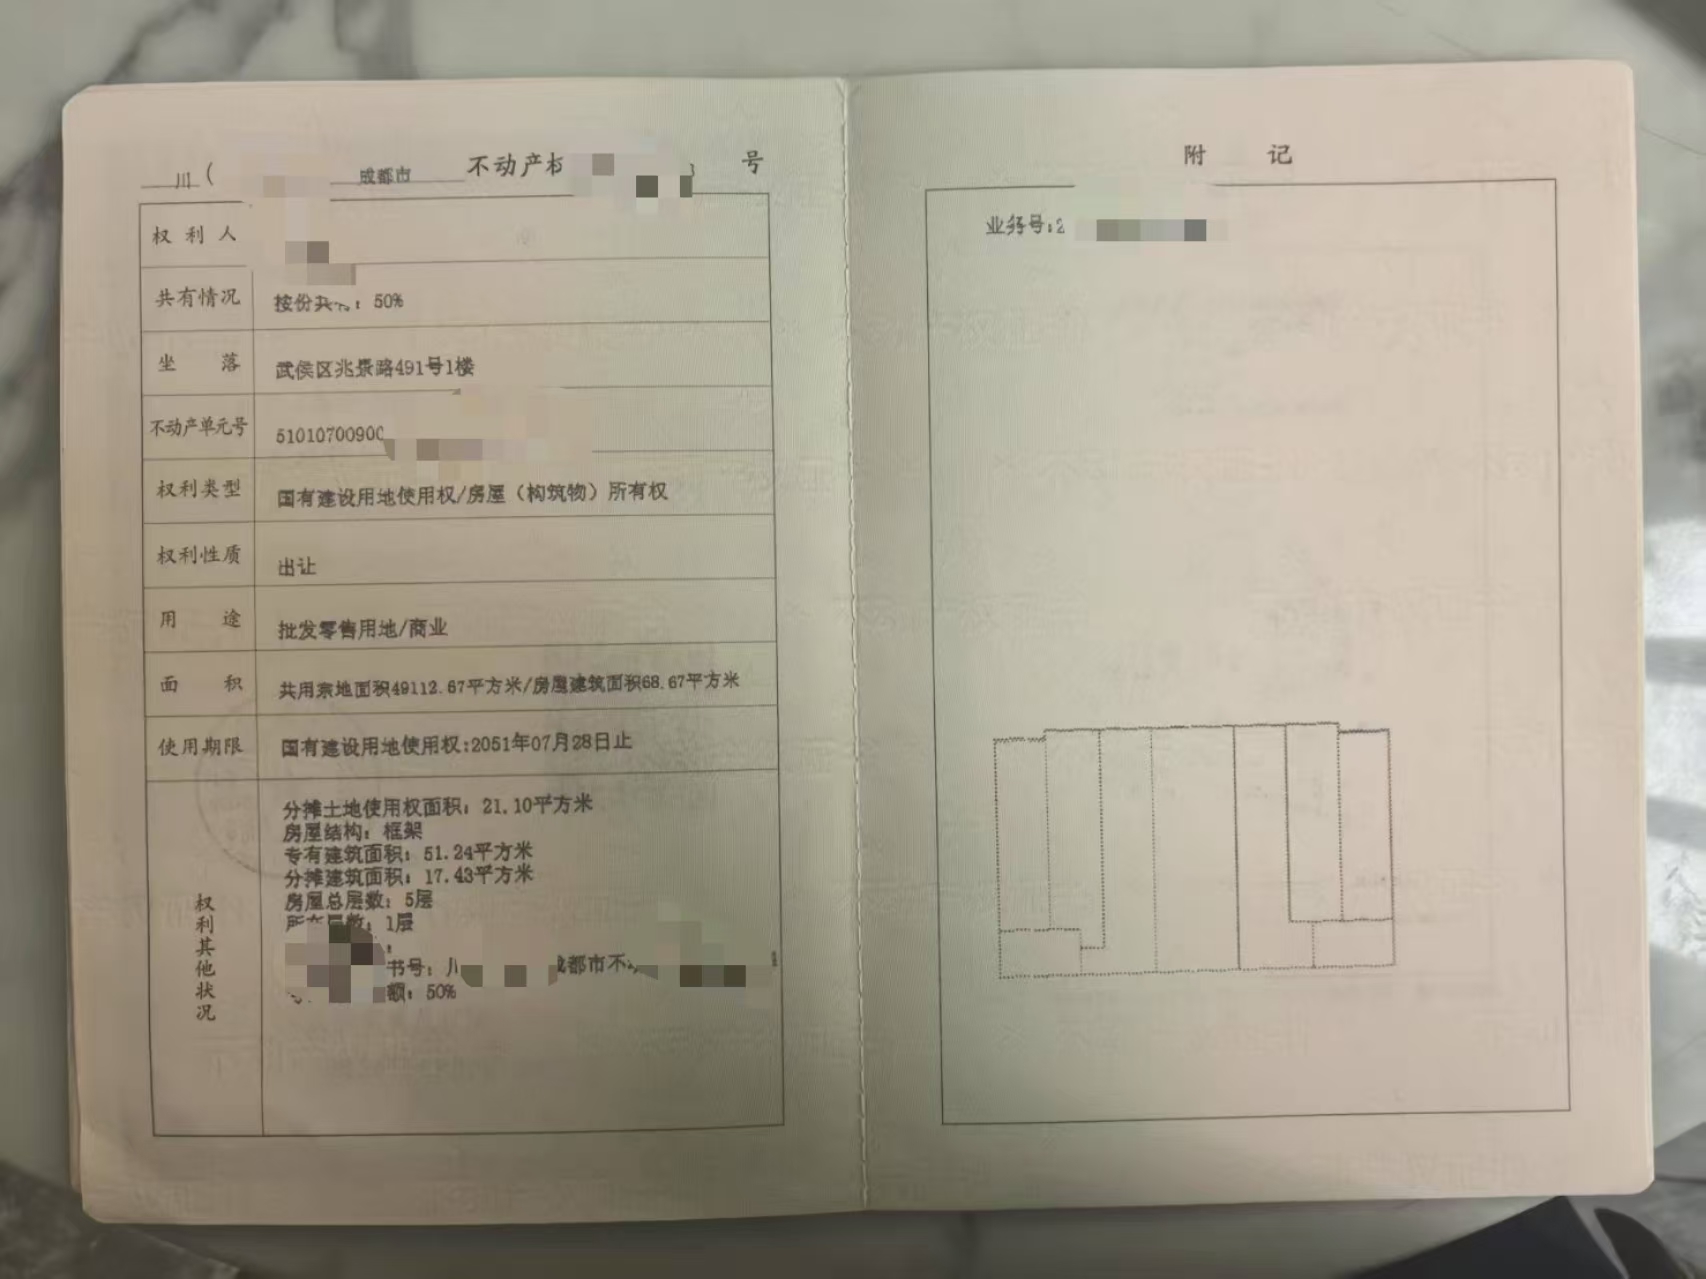 川( 成都市 不动产权 号
权利人
共有情况 按份共有：50%
坐落 武侯区兆景路491号1楼
不动产单元号 51010700900
权利类型 国有建设用地使用权/房屋（构筑物）所有权
权利性质 出让
用途 批发零售用地/商业
面积 共用宗地面积49112.67平方米/房屋建筑面积68.67平方米
使用期限 国有建设用地使用权:2051年07月28日止
权利其他状况
分摊土地使用权面积：21.10平方米
房屋结构：框架
专有建筑面积：51.24平方米
分摊建筑面积：17.43平方米
房屋总层数：5层
所在层数：1层
书号：川 成都市不
额：50%
附记
业务号:2